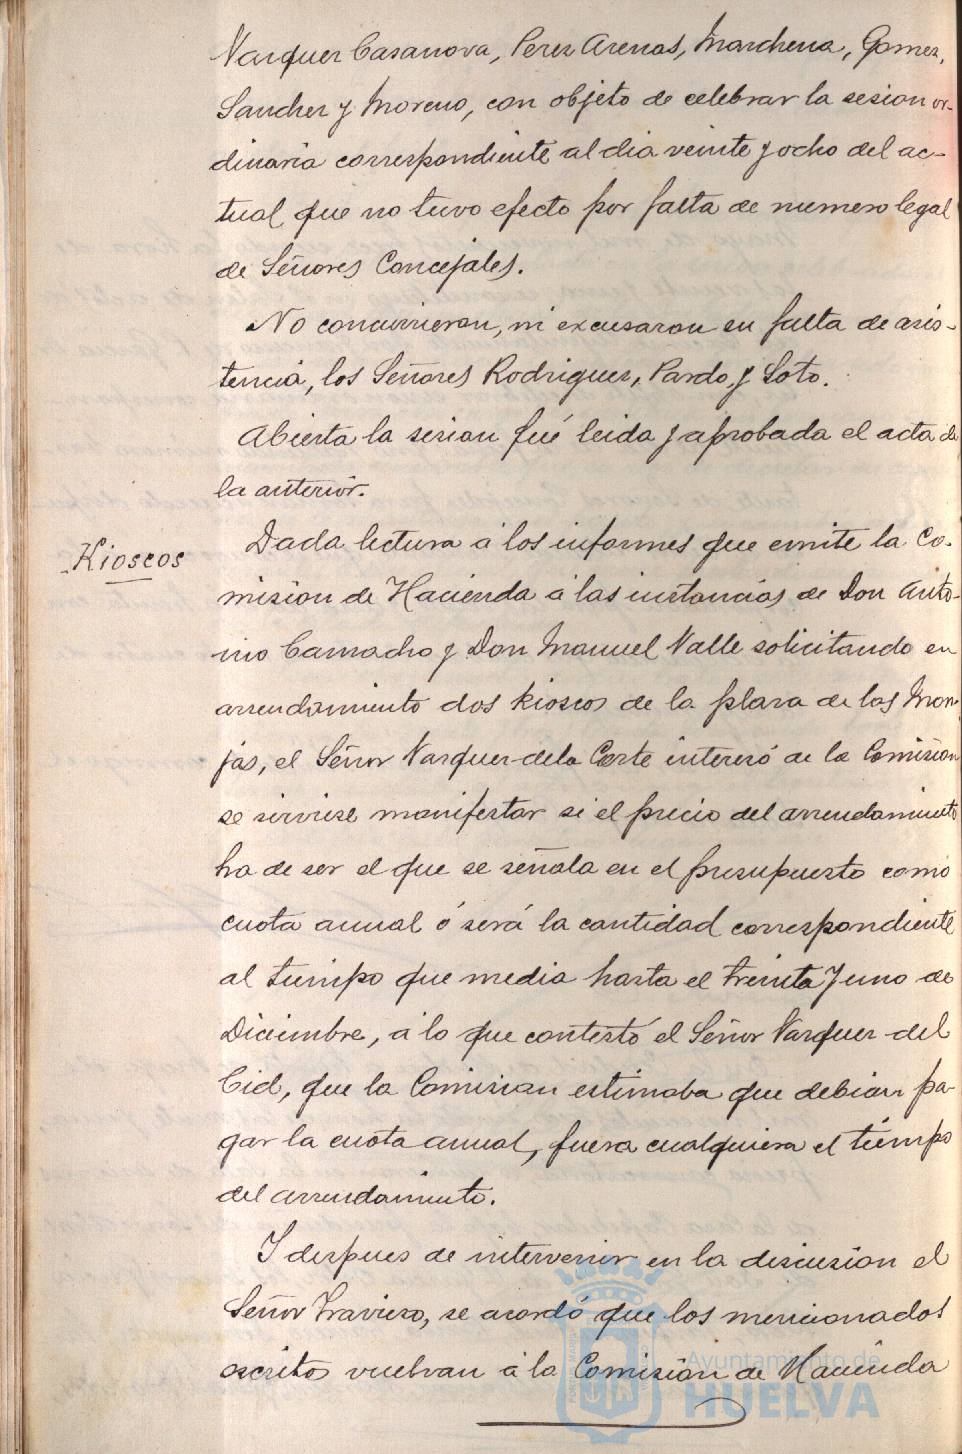 Vazquez Casanova, Perez Arenas, Marchena, Gomez,
Sanchez y Moreno, con objeto de celebrar la sesion or-
dinaria correspondiente al dia veinte y ocho del ac-
tual que no tuvo efecto por falta de numero legal
de Señores Concejales.
No concurrieron, ni excusaron su falta de asis-
tencia, los Señores Rodriguez, Pardo y Soto.
Abierta la sesion fué leida y aprobada el acta de
la anterior.
Kioscos
Dada lectura á los informes que emite la Co-
mision de Hacienda á las instancias de Don Anto-
nio Camacho y Don Manuel Valle solicitando en
arrendamiento dos kioscos de la plaza de las Mon-
jas, el Señor Vazquez de la Corte interesó de la Comision
se sirviese manifestar si el precio del arrendamiento
ha de ser el que se señala en el presupuesto como
cuota anual ó será la cantidad correspondiente
al tiempo que media hasta el treinta y uno de
Diciembre, á lo que contestó el Señor Vazquez del
Cid, que la Comision estimaba que debian pa-
gar la cuota anual, fuera cualquiera el tiempo
del arrendamiento.
Y despues de intervenir en la discusion el
Señor Travieso, se acordó que los mencionados
escritos vuelvan á la Comisión de Hacienda
Ayuntamiento de
HUELVA